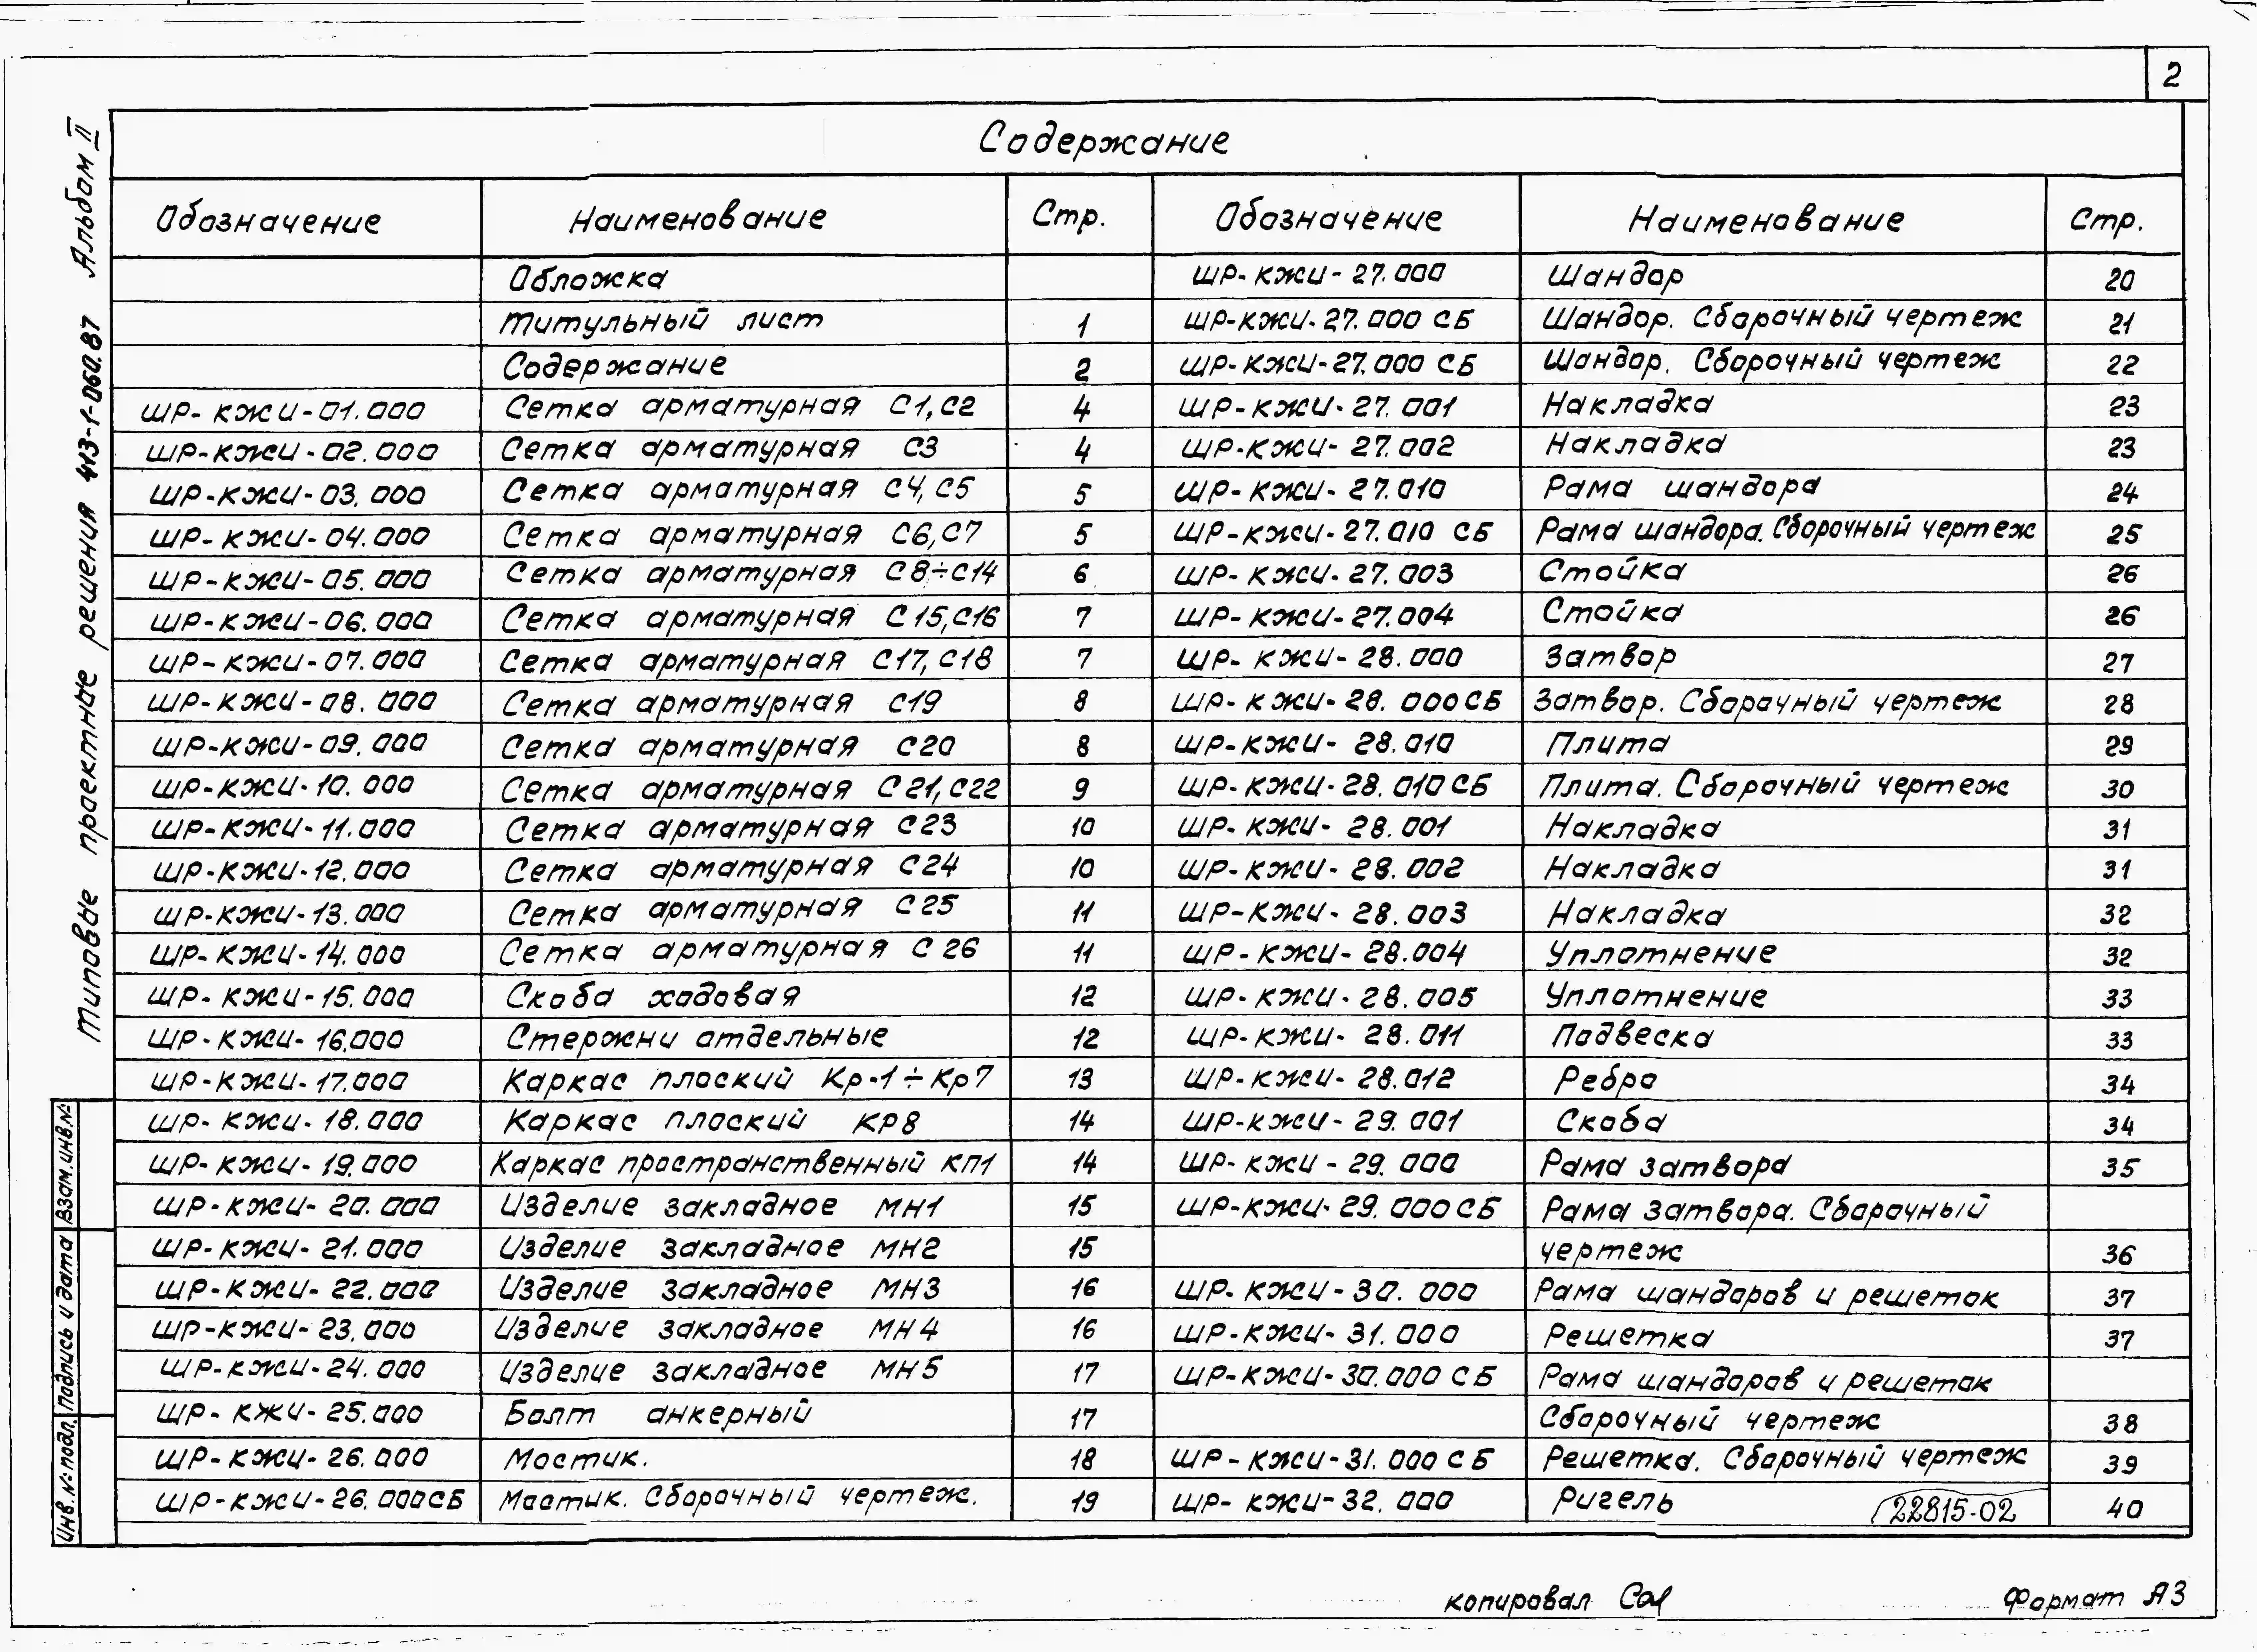 2
Содержание
Обозначение Наименование Стр. Обозначение Наименование Стр.
Обложка ШР-КЖИ-27.000 Шандор 20
Титульный лист 1 ШР-КЖИ-27.000 СБ Шандор. Сборочный чертеж 21
Содержание 2 ШР-КЖИ-27.000 СБ Шандор. Сборочный чертеж 22
ШР-КЖИ-01.000 Сетка арматурная С1, С2 4 ШР-КЖИ-27.001 Накладка 23
ШР-КЖИ-02.000 Сетка арматурная С3 4 ШР-КЖИ-27.002 Накладка 23
ШР-КЖИ-03.000 Сетка арматурная С4, С5 5 ШР-КЖИ-27.010 Рама шандора 24
ШР-КЖИ-04.000 Сетка арматурная С6, С7 5 ШР-КЖИ-27.010 СБ Рама шандора. Сборочный чертеж 25
ШР-КЖИ-05.000 Сетка арматурная С8÷С14 6 ШР-КЖИ-27.003 Стойка 26
ШР-КЖИ-06.000 Сетка арматурная С15, С16 7 ШР-КЖИ-27.004 Стойка 26
ШР-КЖИ-07.000 Сетка арматурная С17, С18 7 ШР-КЖИ-28.000 Затвор 27
ШР-КЖИ-08.000 Сетка арматурная С19 8 ШР-КЖИ-28.000 СБ Затвор. Сборочный чертеж 28
ШР-КЖИ-09.000 Сетка арматурная С20 8 ШР-КЖИ-28.010 Плита 29
ШР-КЖИ-10.000 Сетка арматурная С21, С22 9 ШР-КЖИ-28.010 СБ Плита. Сборочный чертеж 30
ШР-КЖИ-11.000 Сетка арматурная С23 10 ШР-КЖИ-28.001 Накладка 31
ШР-КЖИ-12.000 Сетка арматурная С24 10 ШР-КЖИ-28.002 Накладка 31
ШР-КЖИ-13.000 Сетка арматурная С25 11 ШР-КЖИ-28.003 Накладка 32
ШР-КЖИ-14.000 Сетка арматурная С26 11 ШР-КЖИ-28.004 Уплотнение 32
ШР-КЖИ-15.000 Скоба ходовая 12 ШР-КЖИ-28.005 Уплотнение 33
ШР-КЖИ-16.000 Стержни отдельные 12 ШР-КЖИ-28.011 Подвеска 33
ШР-КЖИ-17.000 Каркас плоский Кр-1÷Кр7 13 ШР-КЖИ-28.012 Ребро 34
ШР-КЖИ-18.000 Каркас плоский КР8 14 ШР-КЖИ-29.001 Скоба 34
ШР-КЖИ-19.000 Каркас пространственный КП1 14 ШР-КЖИ-29.000 Рама затвора 35
ШР-КЖИ-20.000 Изделие закладное МН1 15 ШР-КЖИ-29.000 СБ Рама затвора. Сборочный
ШР-КЖИ-21.000 Изделие закладное МН2 15 чертеж 36
ШР-КЖИ-22.000 Изделие закладное МН3 16 ШР-КЖИ-30.000 Рама шандоров и решеток 37
ШР-КЖИ-23.000 Изделие закладное МН4 16 ШР-КЖИ-31.000 Решетка 37
ШР-КЖИ-24.000 Изделие закладное МН5 17 ШР-КЖИ-30.000 СБ Рама шандоров и решеток
ШР-КЖИ-25.000 Болт анкерный 17 Сборочный чертеж 38
ШР-КЖИ-26.000 Мостик. 18 ШР-КЖИ-31.000 СБ Решетка. Сборочный чертеж 39
ШР-КЖИ-26.000 СБ Мостик. Сборочный чертеж. 19 ШР-КЖИ-32.000 Ригель 40
22815-02
Типовые проектные решения 413-1-060.87 Альбом II
Инв.№подл. Подпись и дата Взам.инв.№
копировал
Формат А3